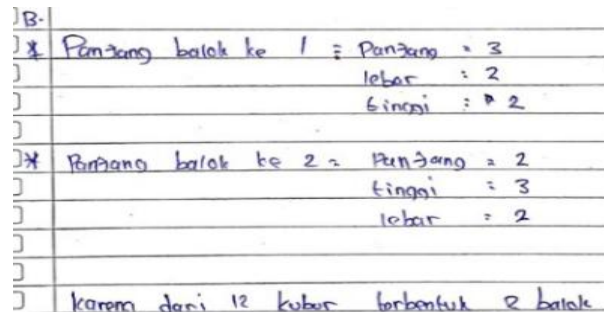 B.
* Panjang balok ke 1 = Panjang = 3
lebar : 2
tinggi : 2
* Panjang balok ke 2 = Panjang = 2
tinggi : 3
lebar : 2
karena dari 12 kubus terbentuk 2 balok